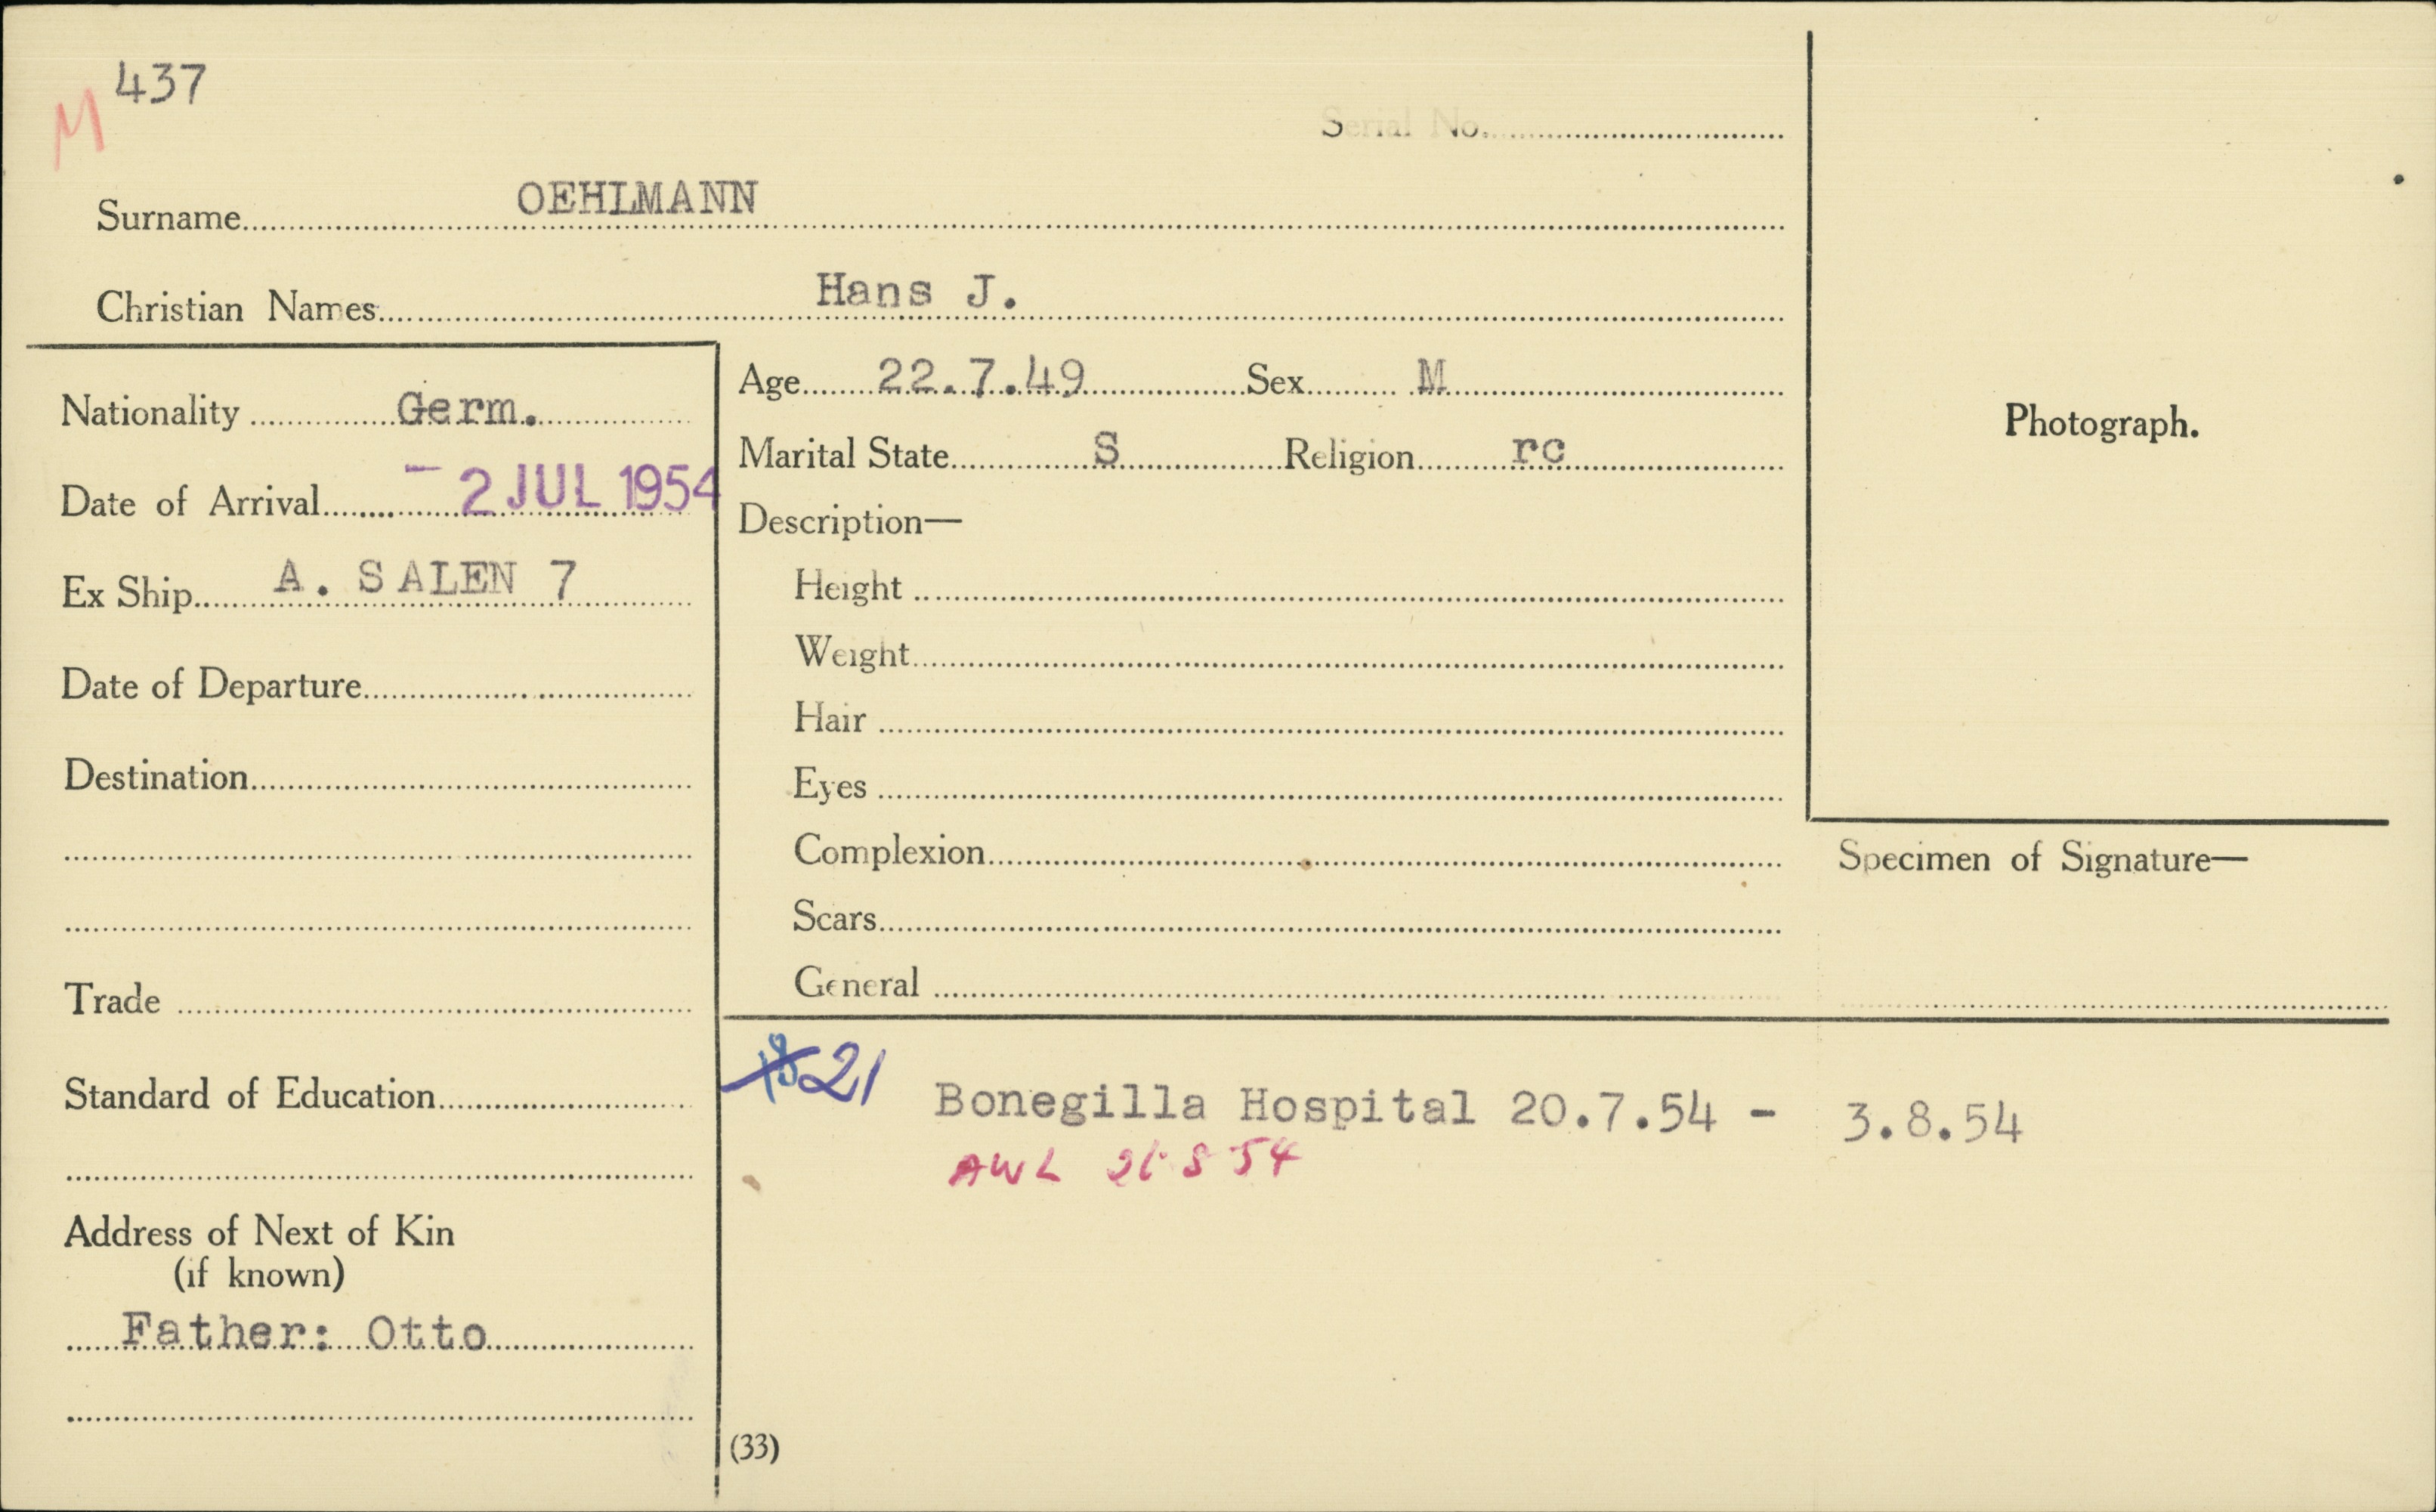 M 437
Serial No.
Surname OEHLMANN
Christian Names Hans J.
Nationality Germ.
Date of Arrival - 2 JUL 1954
Ex Ship A. SALEN 7
Date of Departure
Destination
Trade
Standard of Education
Address of Next of Kin
(if known)
Father: Otto
Age 22.7.49 Sex M
Marital State S Religion rc
Description—
Height
Weight
Hair
Eyes
Complexion
Scars
General
Photograph.
Specimen of Signature—
18 21
Bonegilla Hospital 20.7.54 - 3.8.54
AWL 8 54
(33)